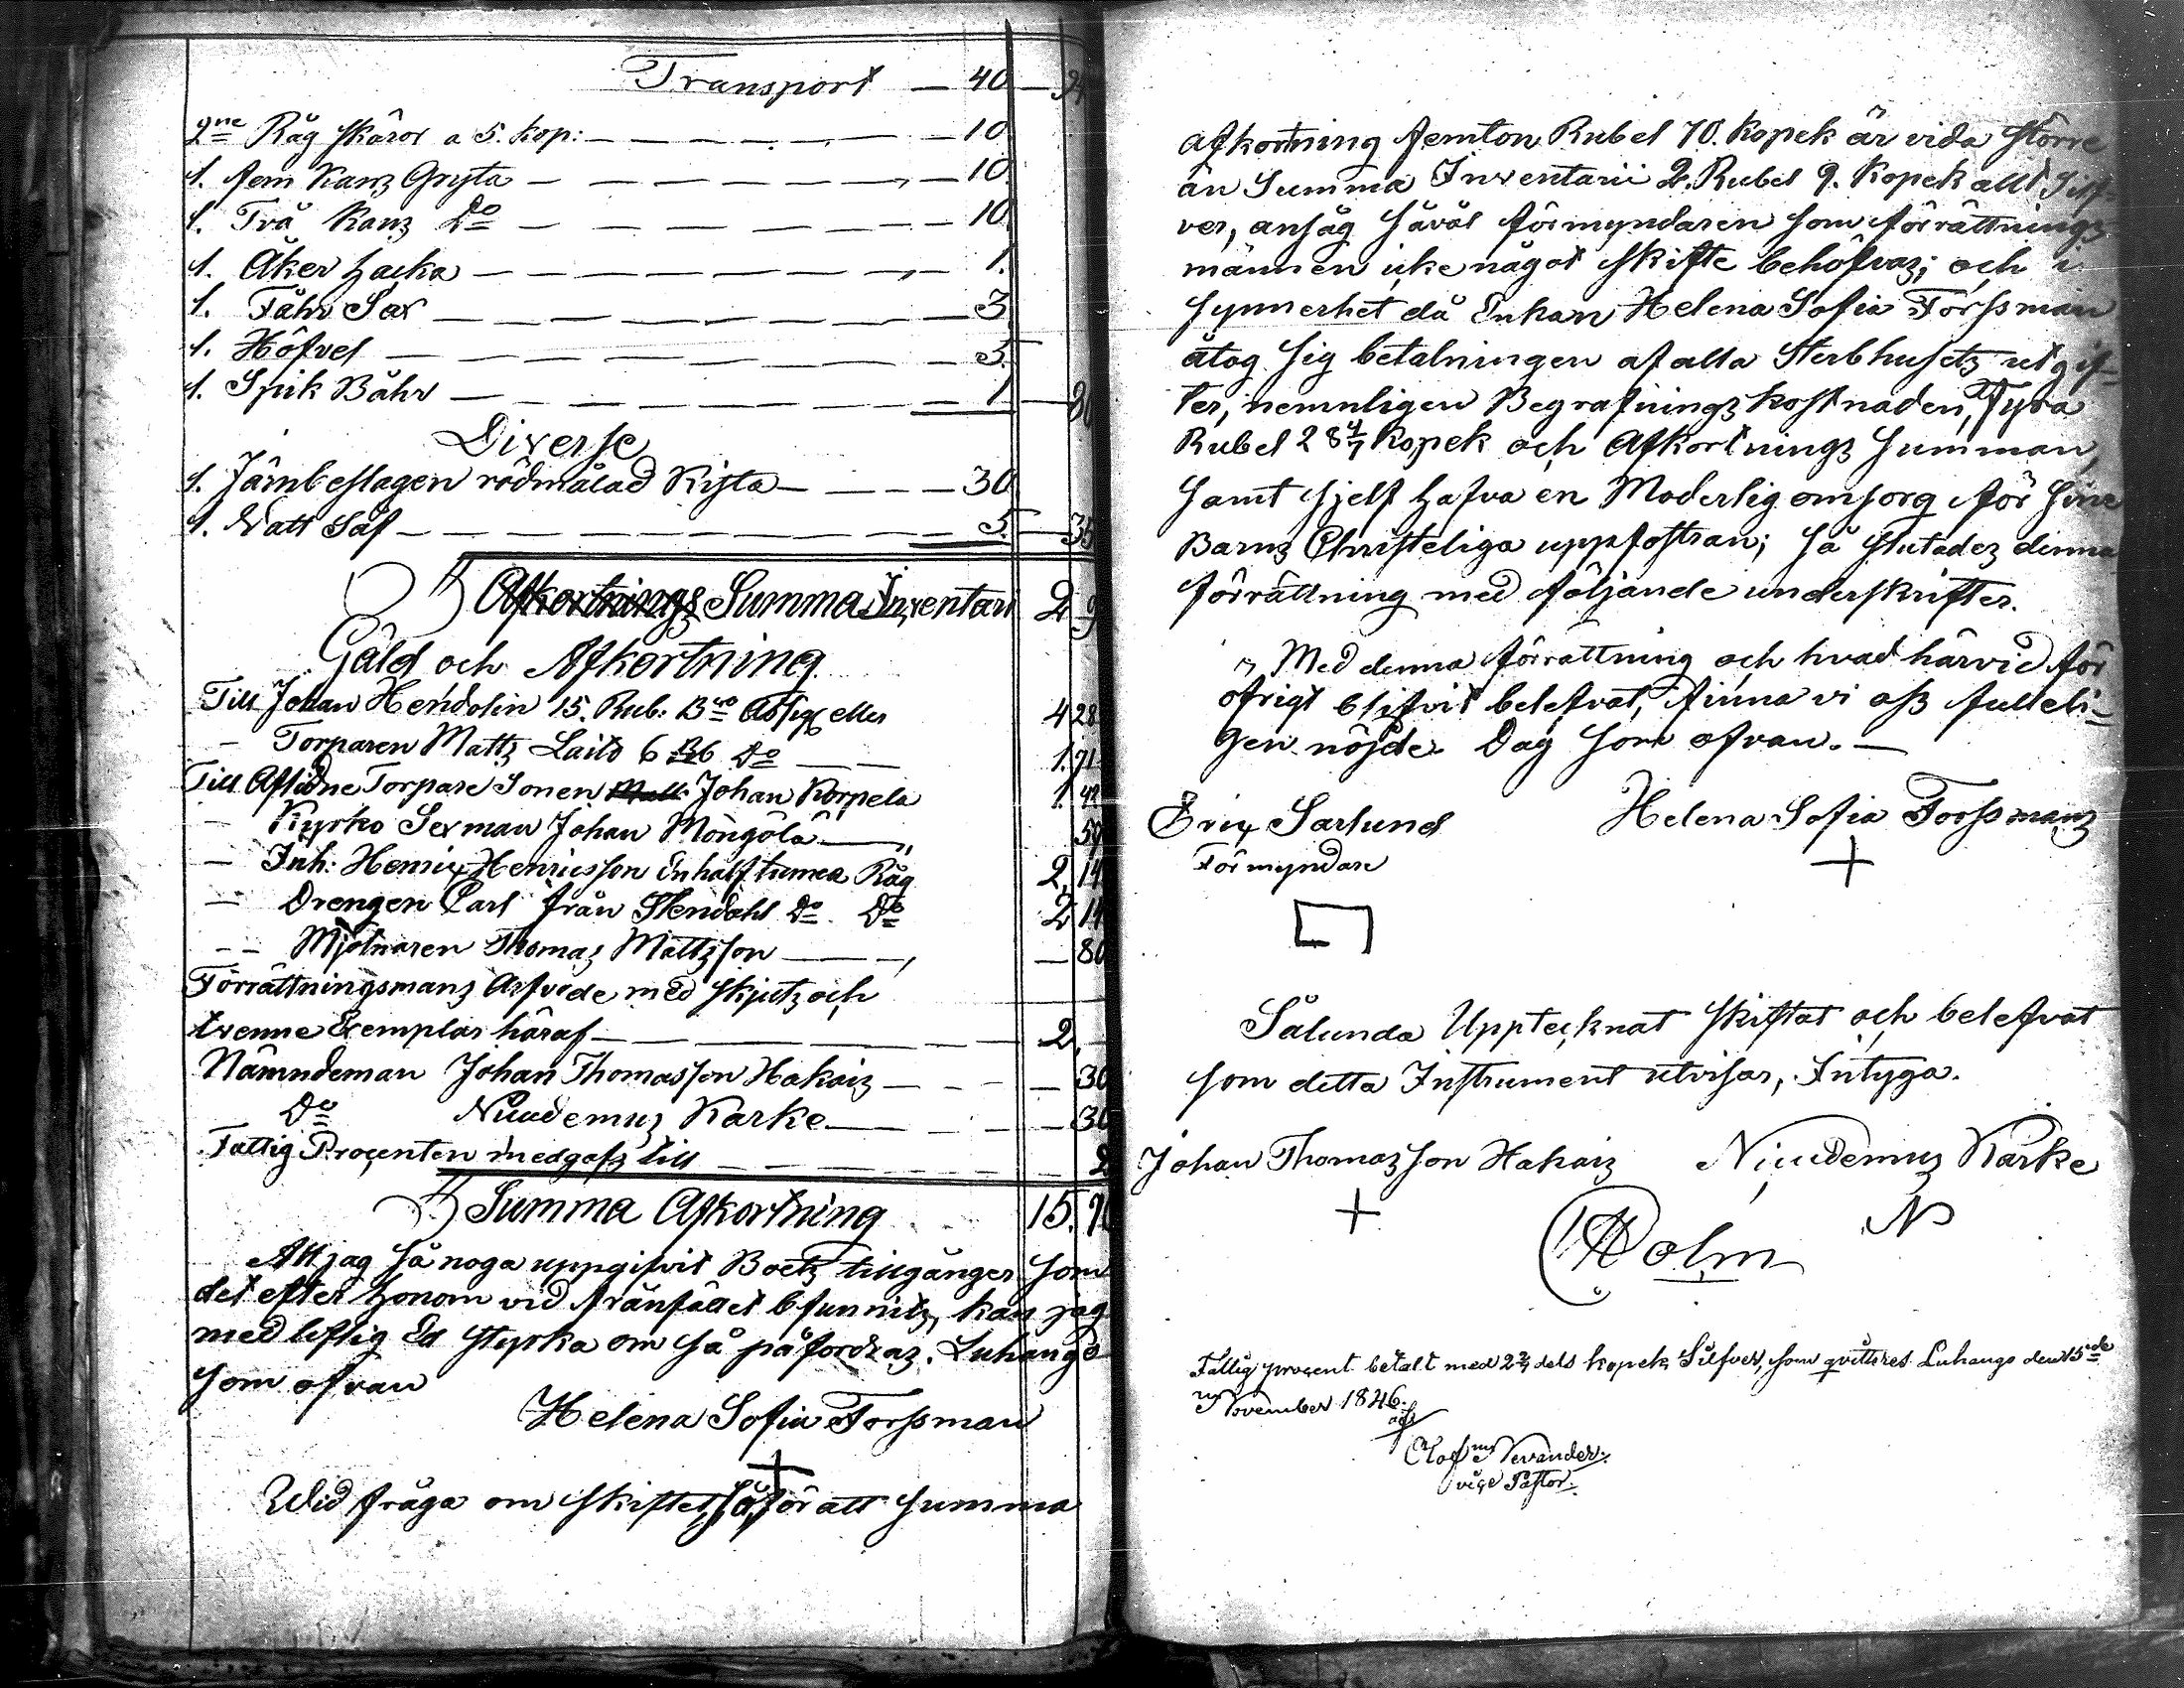 Transport — 40 —
2ne Råg skäror a 5. kop: — 10
1. fem Kanz Gryta — 10.
1. Två Kanz Do — 10.
1. Åker Hacka — 1.
1. Fåhr Sax — 3
1. Höfvel — 5.
1. Spik Båhr — 1 —
Diverse
1. Järnbeslagen rödmålad Kista — 30
1. Natt Säf — 5. — 35
Afkortnings Summa Inventari 2 9
Gäld och Afkortning
Till Johan Hendolin 15. Rub: Bco Assig eller 4 28
— Torparen Mattz Laito 6 R6 Do — 1. 71
Till Aflidne Torpare Sonen Johan Korpela 1. 42
— Kyrko Sexman Johan Möngölä — 59
— Inh: Henrix Henricsson En half tunna Råg 2, 14
— Drengen Carl från Stendahl Do Do 2 14
— Mjölnaren Thomaz Mattzson — 80
Förrättningsmanz Arfvode med skjutz och
tvenne Exemplar häraf — 2, —
Nämndeman Johan Thomasson Hakaiz — 30
Do Nicudemuz Karke — 30
Fattig Procenten medgafz till — 2
Summa Afkortning 15. 70
Att jag så noga uppgifvit Boetz tillgånger som
det efter honom vid frånfället bfunnitz, kan jag
med liflig Ed styrka om så påfordraz. Luhango
som ofvan
Helena Sofia Forssman
+
Wid fråga om skiftet, så för att Summa
afkortning femton Rubel 70. Kopek är vida större
än Summa Inventarii 2. Rubel 9. Kopek allt Silf-
ver, ansåg såväl förmyndaren som förrättningz
männen icke något skifte behöfvaz; och i
synnerhet då Enkan Helena Sofia Forssman
åtog sig betalningen af alla Sterbhusetz utgif-
ter, nemnligen Begrafningz kostnaden, Fyra
Rubel 28 4/7 Kopek och Afkortningz Summan,
samt sjelf hafva en Moderlig omsorg för sine
Barnz Christeliga uppfostran; så slutadez denna
förrättning med följande underskrifter.
Med denna förrättning och hvad härvid för
öfrigt blifvit belefvat, finna vi oss fulleli-
gen nöjde. Dag som ofvan. —
Erix Sarlund Helena Sofia Forssmanz
Förmyndare +
Sålunda Upptecknat skiftat och belefvat
som detta Instrument utvisar, Intyga.
Johan Thomazson Hakaiz Nicudemuz Karke
+ N
Holm
Fattig procent betalt med 2 2/7 dels kopek Silfver, som qvitteres Luhango den 15de
November 1846.
Olof Nevander.
vice Pastor.